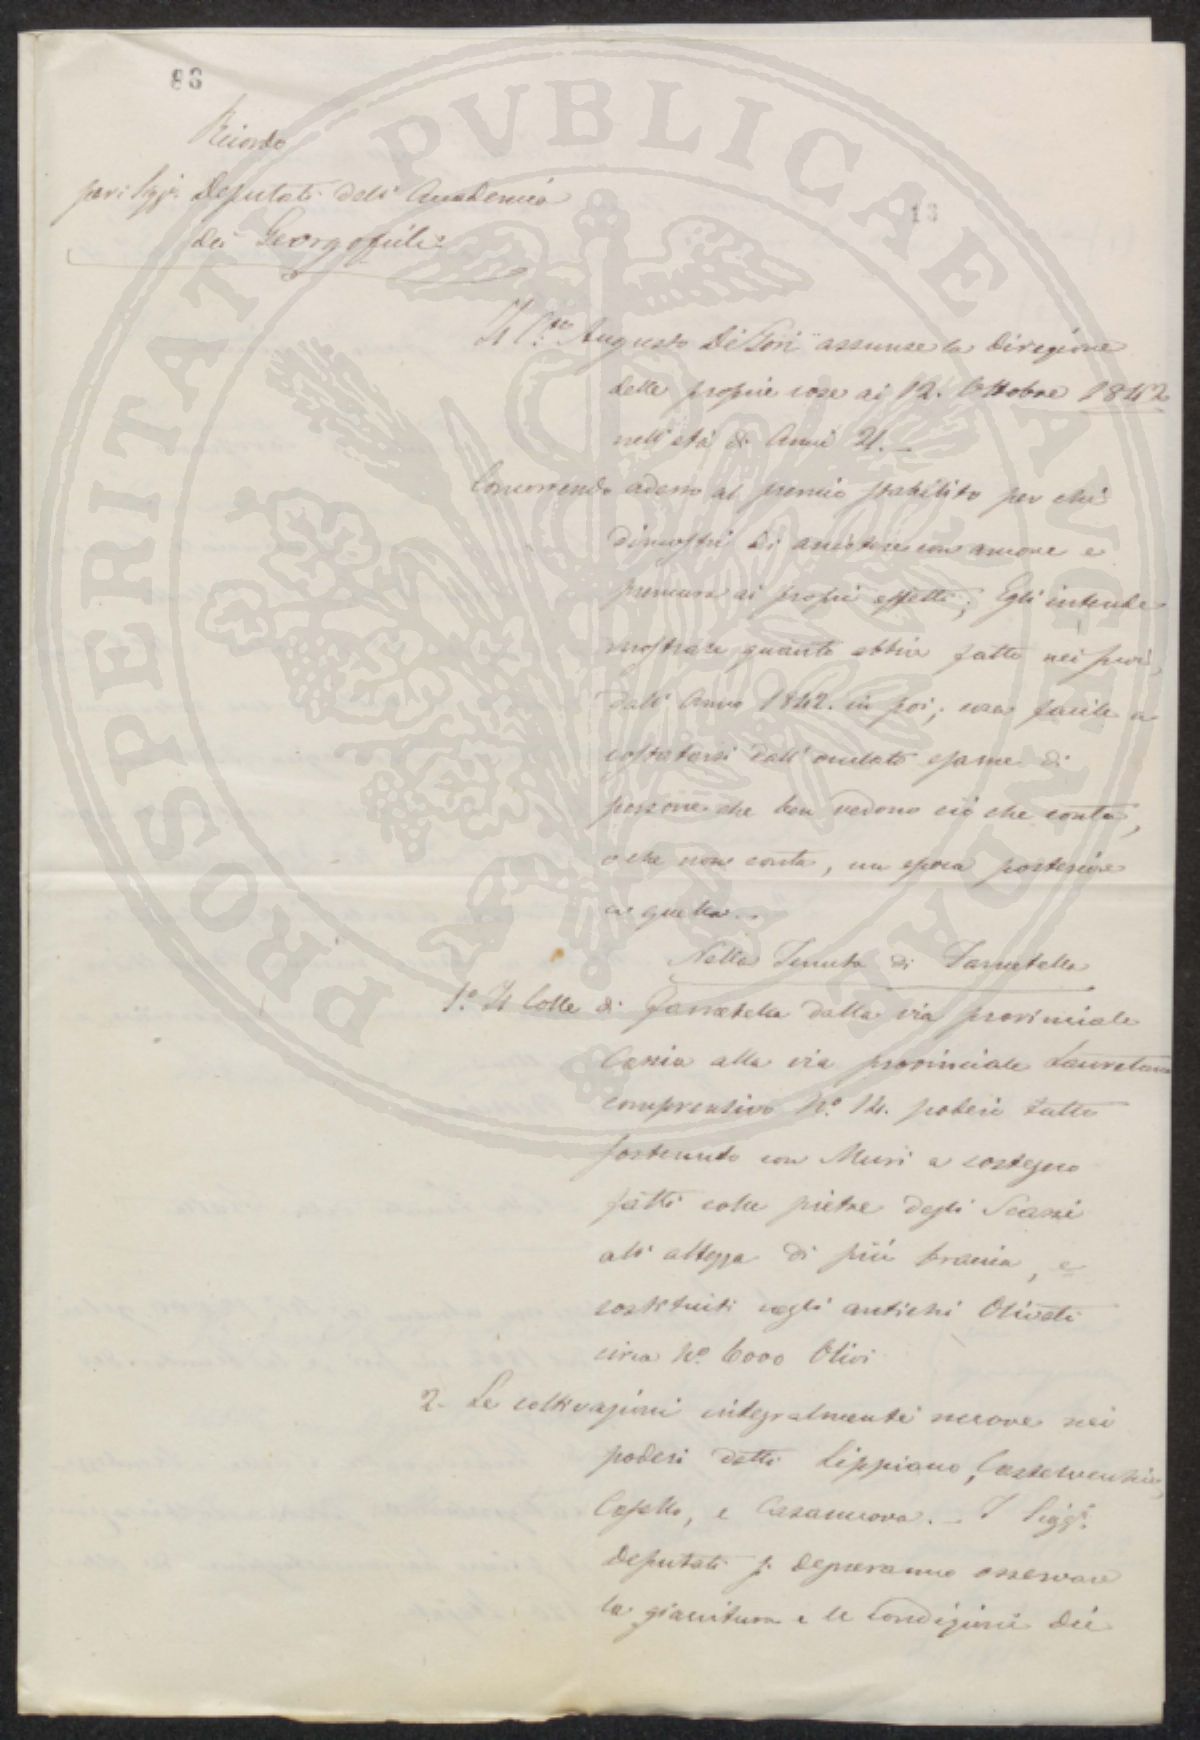 83
13
Ricordo
per i Sigg.i Deputati dell'Accademia
dei Georgofili
Il C.te Augusto De Gori assunse la direzione
delle proprie cose ai 12. Ottobre 1842
nell'età di Anni 21.
Concorrendo adesso al premio stabilito per chi
dimostri di assistere con amore e
premura ai proprii effetti; Egli intende
mostrare quanto abbia fatto nei suoi,
dall'Anno 1842. in poi; cosa facile a
costatarsi dall'oculato esame di
persone che ben vedono ciò che conta,
o che non conta, un epoca posteriore
a quella.
Nella Tenuta di
1.o Il Colle di dalla via provinciale
Cassia alla via provinciale Lauretana
comprensivo N.o 14. poderi tutto
sostenuto con Muri a sostegno
fatti colle pietre degli Scassi
all'altezza di più braccia, e
sostituiti negli antichi Oliveti
circa N.o 6000 Olivi
2. Le coltivazioni integralmente nuove nei
poderi detti Lippiano,
Casella, e Casanuova. I Sigg.i
Deputati si degneranno osservare
la giacitura e le condizioni dei
PROSPERITATI PVBLICAE AVGENDAE